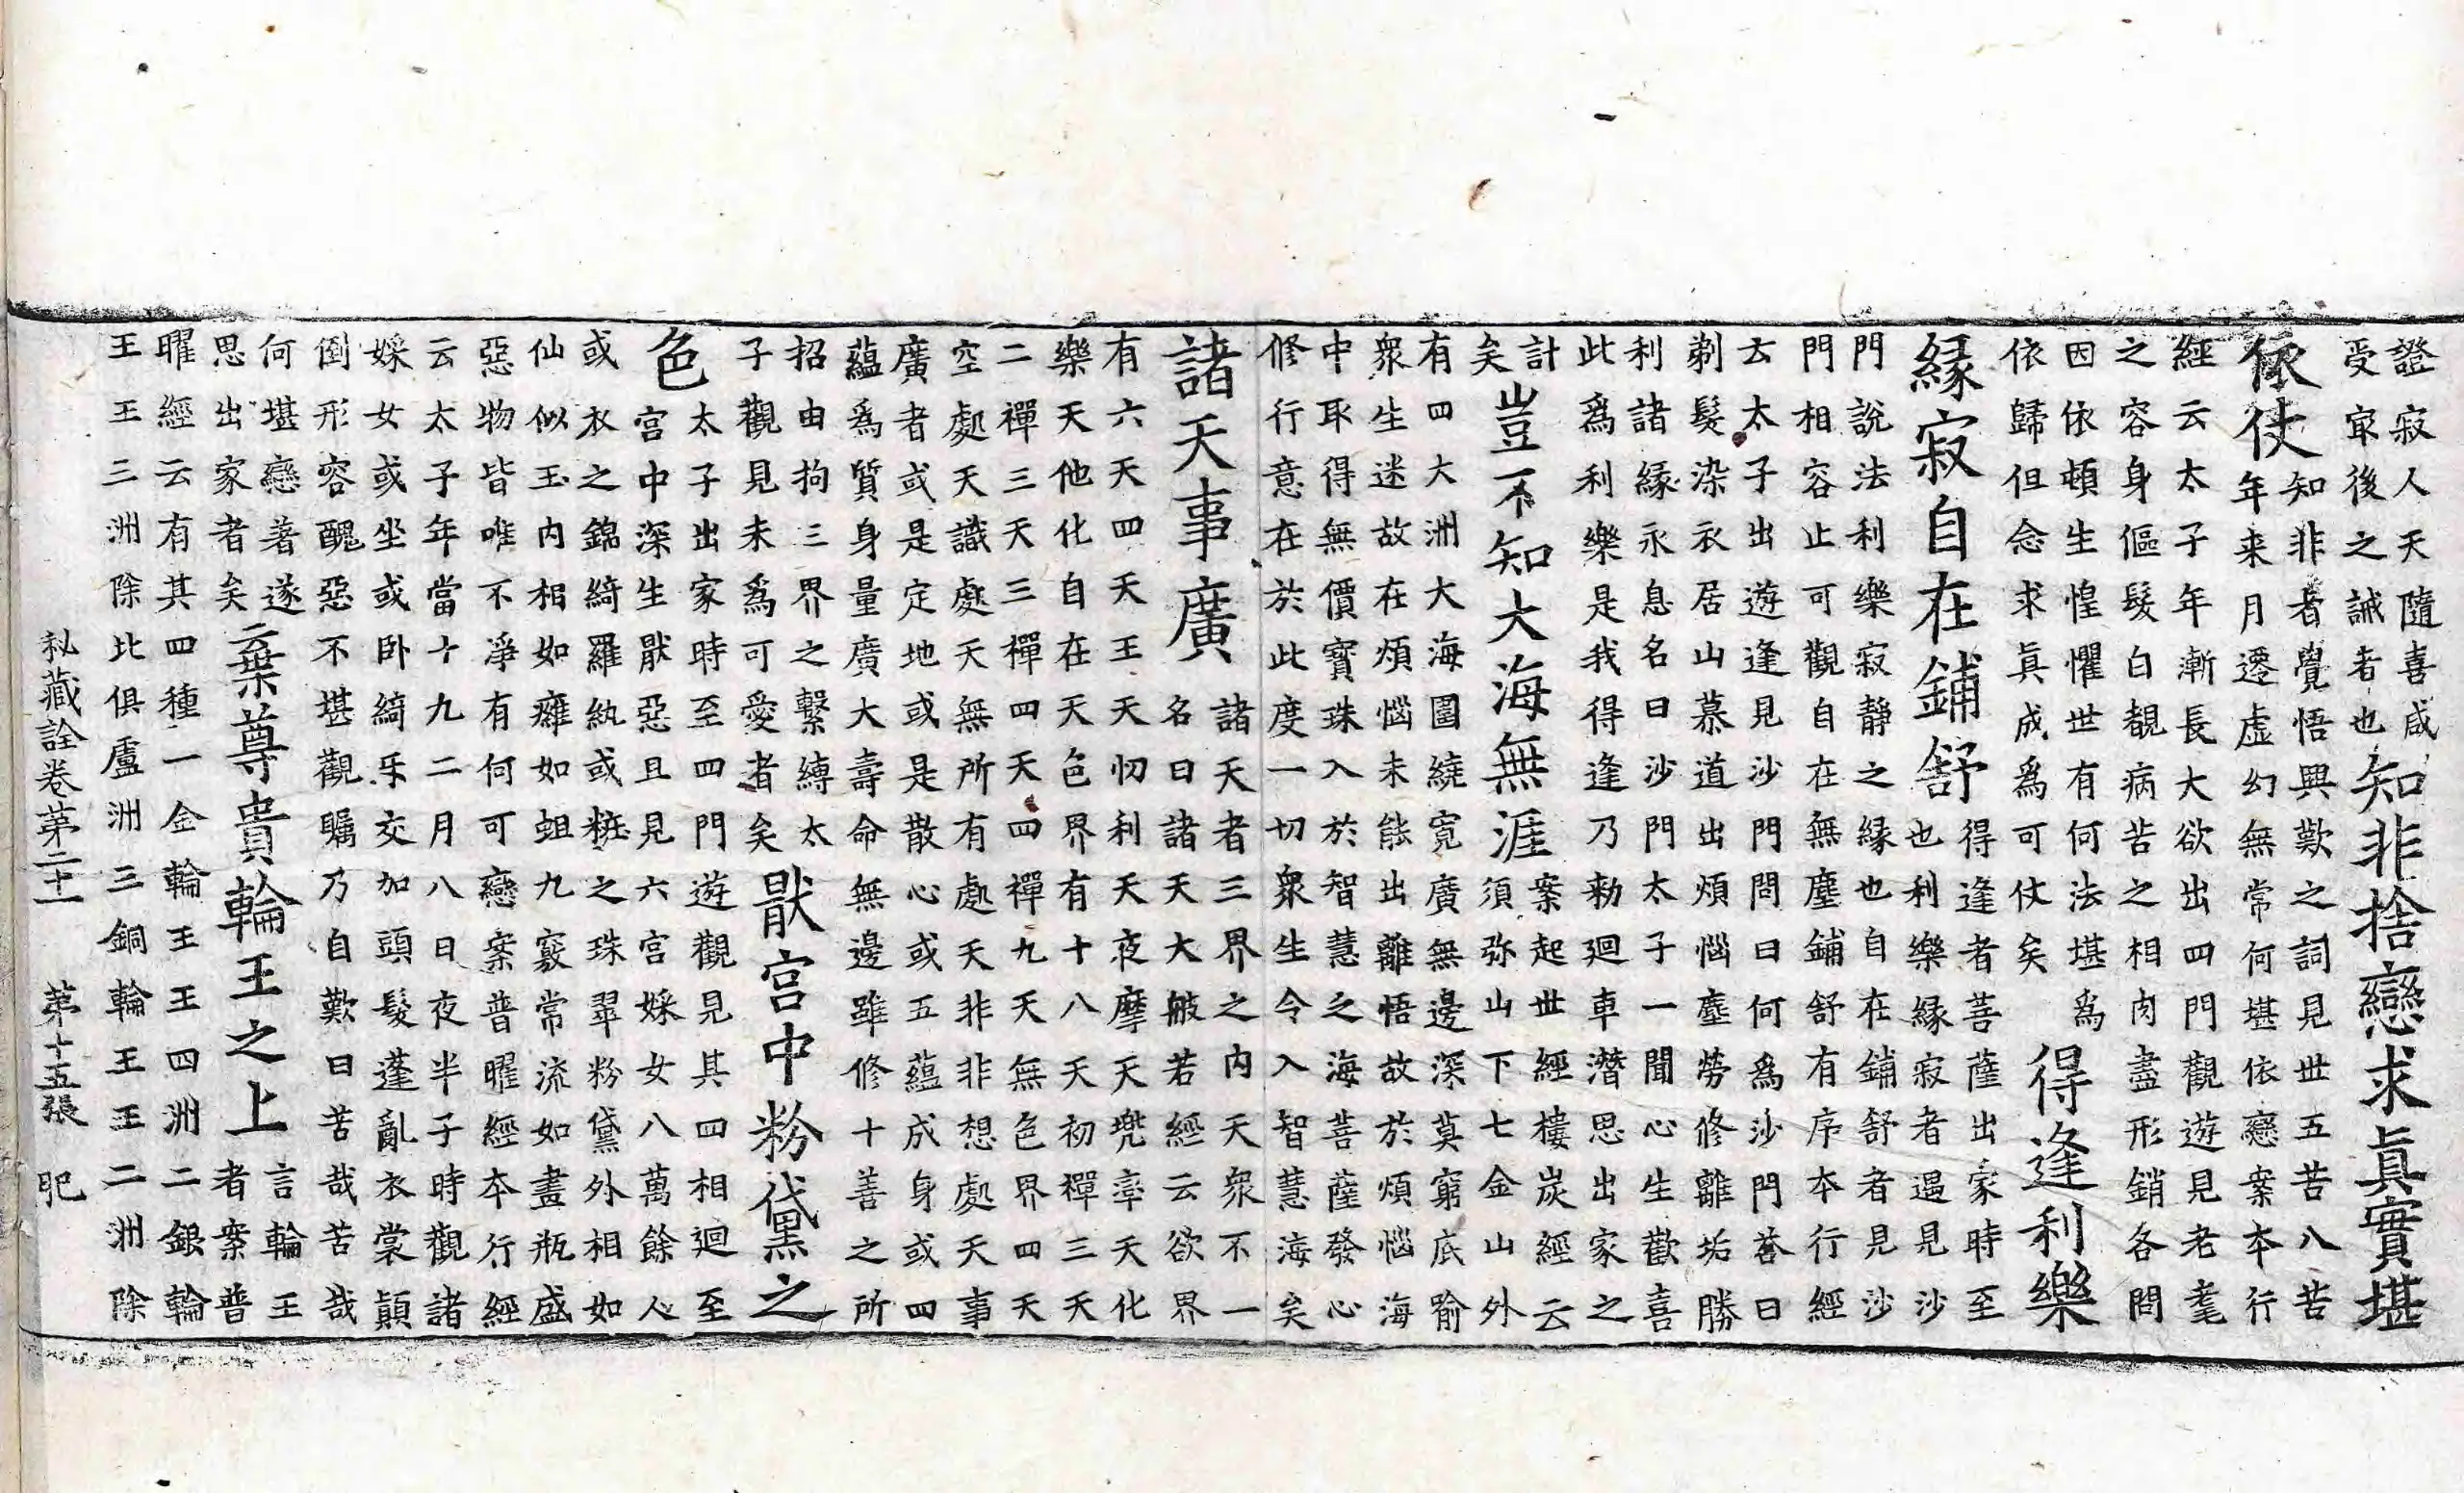 證寂人天隨喜咸
受㝡後之誡者也
知非捨戀求眞實堪
依仗
知非者覺悟興歎之詞見世五苦八苦
年来月遷虛幻無常何堪依戀案本行
經云太子年漸長大欲出四門觀遊見老耄
之容身傴髮白覩病苦之相肉盡形銷各問
因依頓生惶懼世有何法堪爲
依歸但念求眞成爲可仗矣
得逢利樂
緣寂自在鋪舒
得逢者菩薩出家時至
也利樂緣寂者遇見沙
門說法利樂寂靜之緣也自在鋪舒者見沙
門相容止可觀自在無塵鋪舒有序本行經
云太子出遊逢見沙門問曰何爲沙門荅曰
剃髮染衣居山慕道出煩惱塵勞修離垢勝
利諸緣永息名曰沙門太子一聞心生歡喜
此爲利樂是我得逢乃勑迴車潛思出家之
計
矣
豈不知大海無涯
案起世經樓炭經云
須弥山下七金山外
有四大洲大海圍繞寬廣無邊深莫窮底喻
衆生迷故在煩惱未能出離悟故於煩惱海
中取得無價寶珠入於智慧之海菩薩發心
修行意在於此度一切衆生令入智慧海矣
諸天事廣
諸天者三界之内天衆不一
名曰諸天大般若經云欲界
有六天四天王天忉利天夜摩天兠率天化
樂天他化自在天色界有十八天初禪三天
二禪三天三禪四天四禪九天無色界四天
空處天識處天無所有處天非非想處天事
廣者或是定地或是散心或五蘊成身或四
蘊爲質身量廣大壽命無邊雖修十善之所
招由拘三界之繫縛太
子觀見未爲可愛者矣
猒宮中粉黛之
色
太子出家時至四門遊觀見其四相迴至
宮中深生猒惡且見六宮婇女八萬餘人
或衣之錦綺羅紈或粧之珠翠粉黛外相如
仙似玉内相如癰如蛆九竅常流如畫瓶盛
惡物皆唯不淨有何可戀案普曜經本行經
云太子年當十九二月八日夜半子時觀諸
婇女或坐或卧綺㸦交加頭髮蓬亂衣裳顚
倒形容醜惡不堪觀矚乃自歎曰苦哉苦哉
何堪戀著遂
思出家者矣
棄尊貴輪王之上
言輪王
者案普
曜經云有其四種一金輪王王四洲二銀輪
王王三洲除北俱盧洲三銅輪王王二洲除
秘藏詮卷第二十一　第十五張　肥